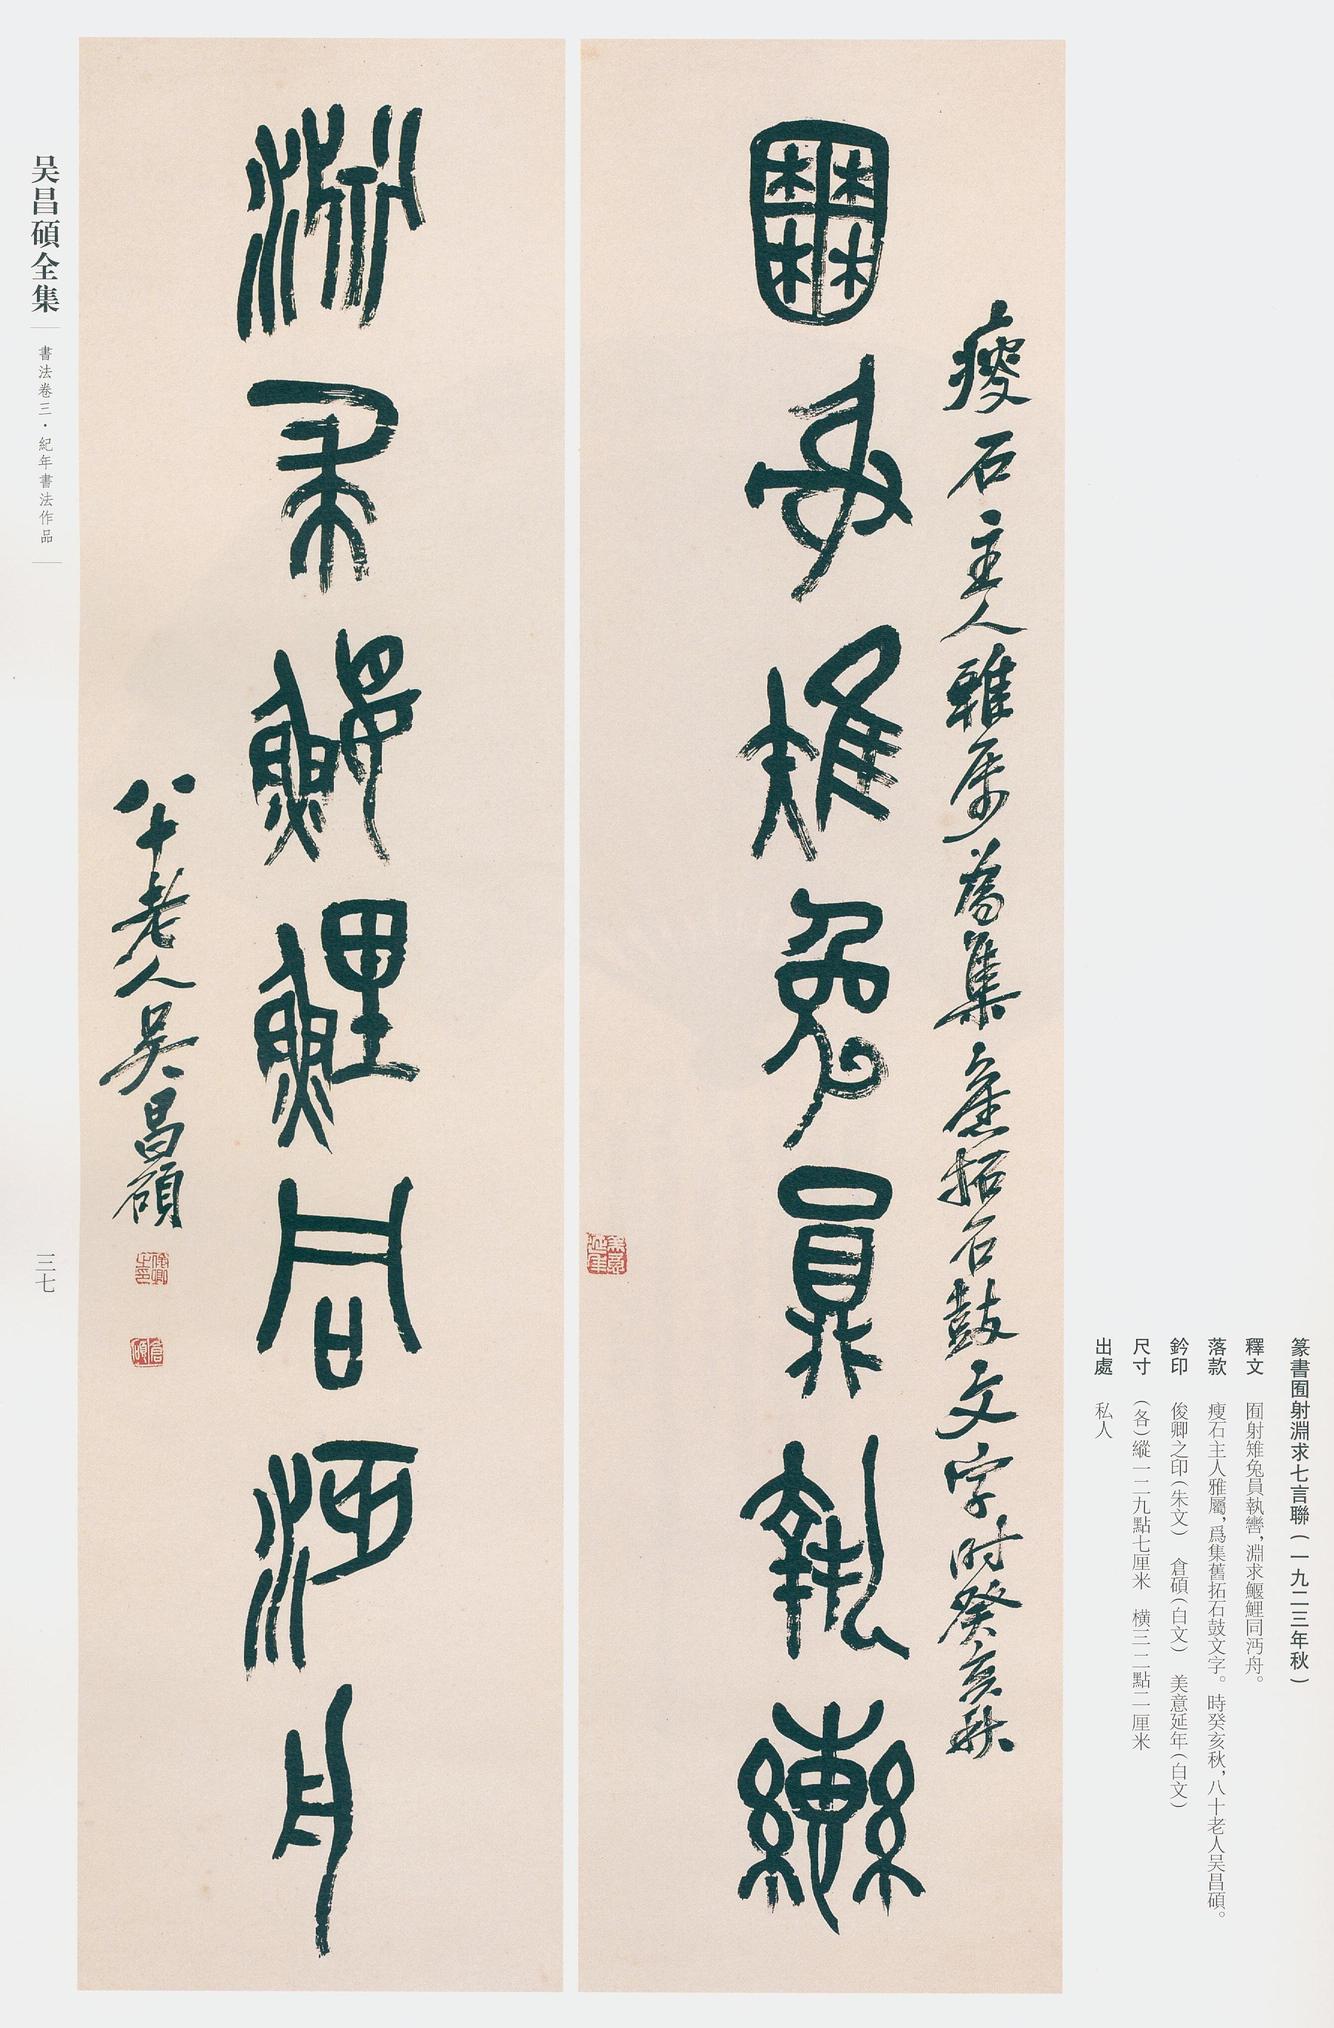 囿射雉兔員執轡
瘦石主人雅属為集舊拓石鼓文字时癸亥秋
美意延年
淵求鰋鯉同沔舟
八十老人吴昌碩
俊卿之印
倉碩
篆書囿射淵求七言聯(一九二三年秋)
釋文 囿射雉兔員執轡,淵求鰋鯉同沔舟。
落款 瘦石主人雅屬,爲集舊拓石鼓文字。時癸亥秋,八十老人吴昌碩。
鈐印 俊卿之印(朱文) 倉碩(白文) 美意延年(白文)
尺寸 (各)縱一二九點七厘米 横三二點二厘米
出處 私人
吴昌碩全集
書法卷三·紀年書法作品
三七